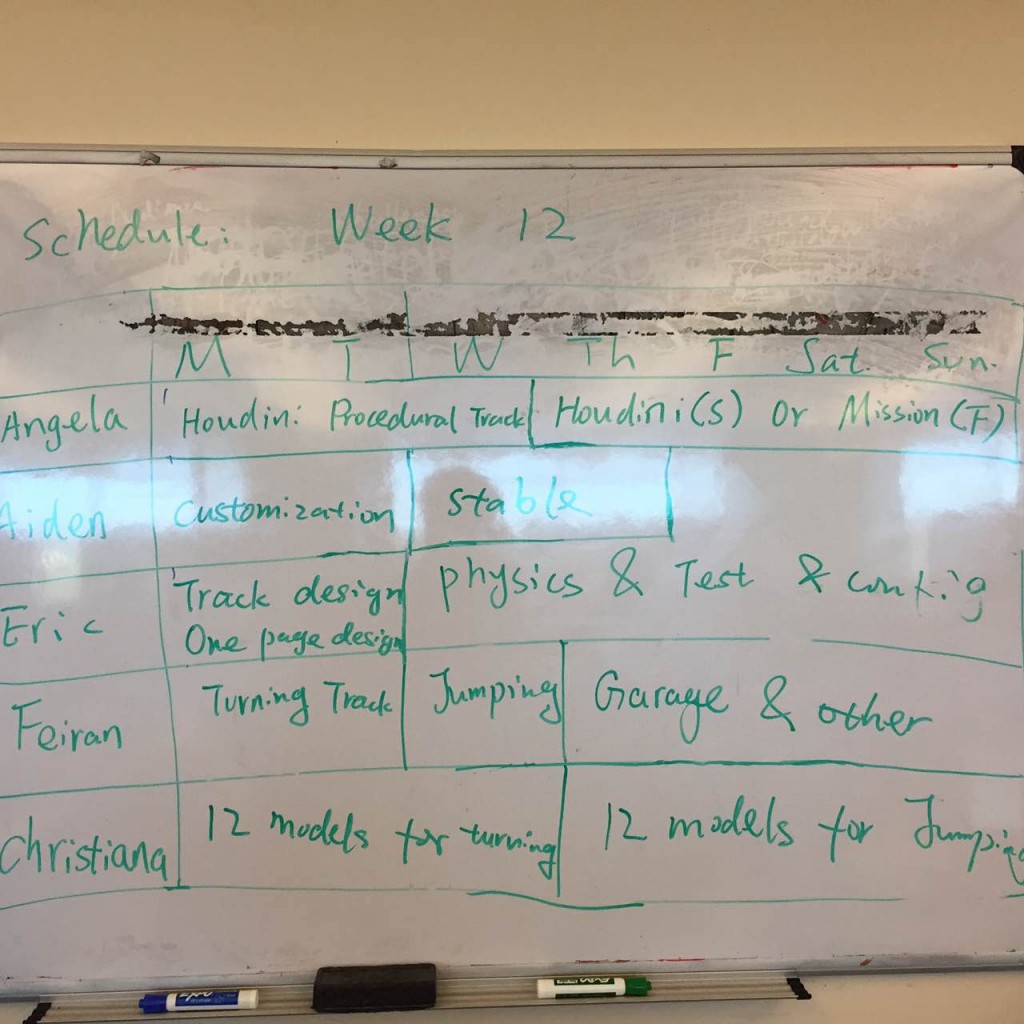 Schedule: Week 12
M T W Th F Sat. Sun.
Angela Houdini Procedural Track Houdini(S) Or Mission(F)
Aiden Customization Stable
Eric Track design physics & Test & config
One page design
Feiran Turning Track Jumping Garage & other
Christiana 12 models for turning 12 models for Jumping
EXPO